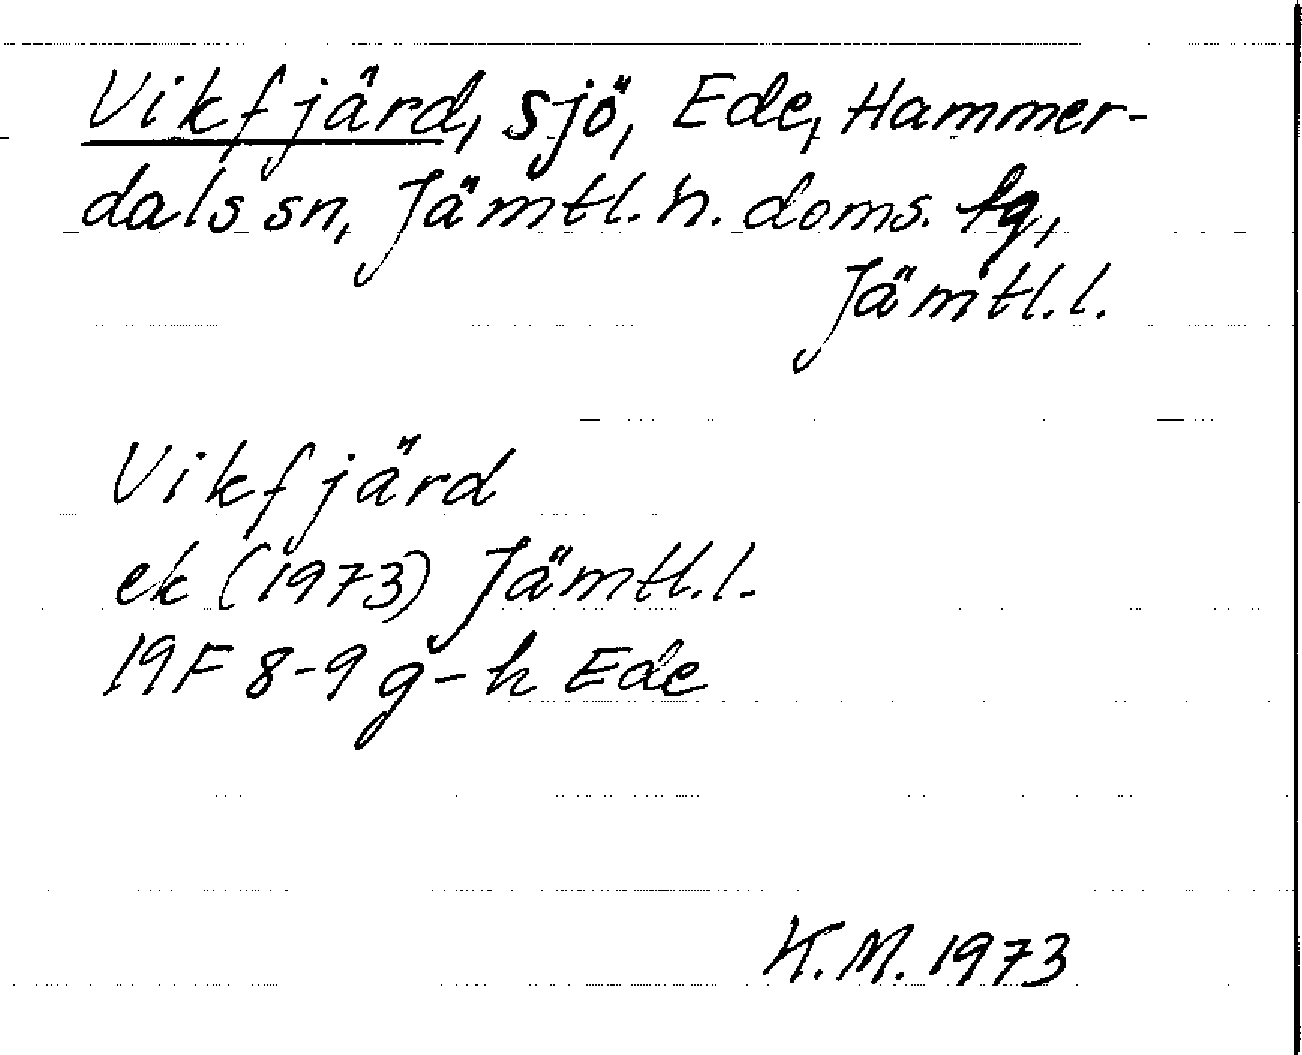 Vikfjärd, sjö, Ede, Hammer-
dals sn, Jämtl. n. doms. tg,
Jämtl. l.
Vikfjärd
ek (1973) Jämtl. l.
19F 8-9 g-h Ede
K.M. 1973